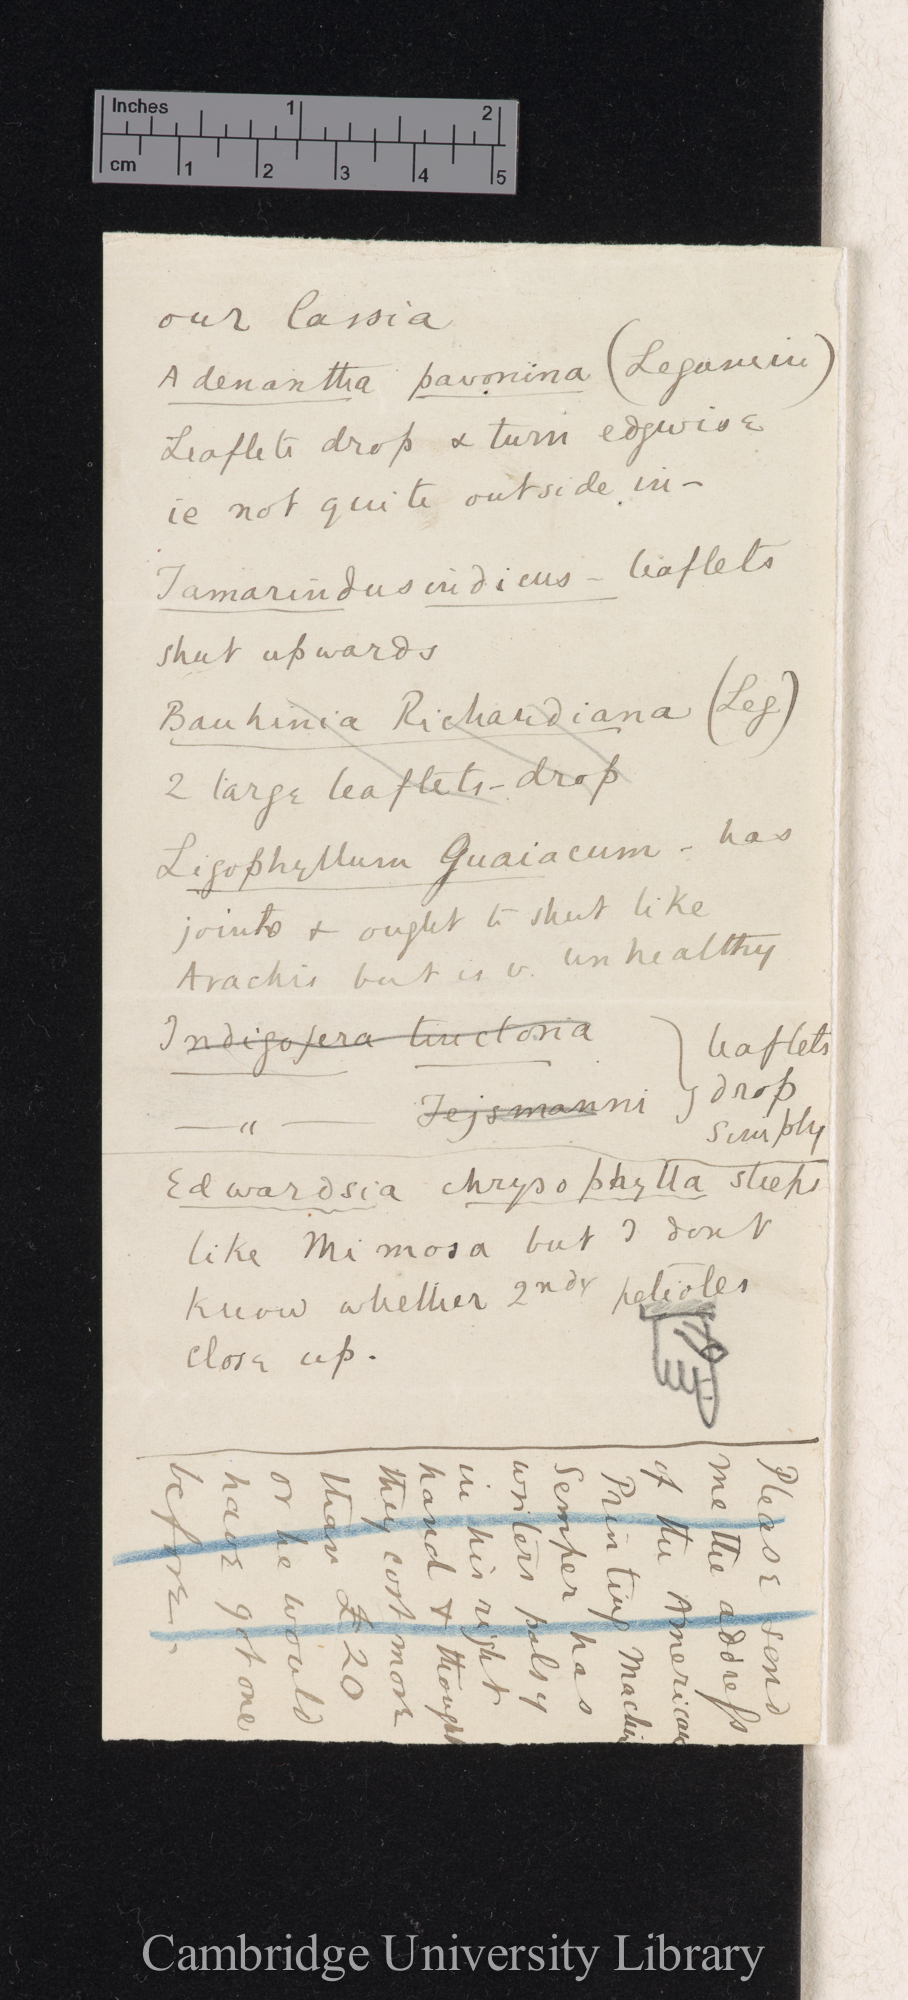 Inches 1 2
cm 1 2 3 4 5
our Cassia
Adenantha pavonina (Legumin)
Leaflets drop & turn edgwise
ie not quite outside in-
Tamarindus indicus - leaflets
shut upwards
Bauhinia Richardiana (Leg)
2 large leaflets - drop
Zigophyllum Guaiacum - has
joints & ought to shut like
Arachis but is v. unhealthy
Indigofera tinctoria } leaflets
—"— Tejsmanni } drop
simply
Edwardsia chrysophylla sleeps
like Mimosa but I dont
know whether 2ndy petioles
close up.
Please send
me the address
of the American
Printing Machin
Semper has
writers palsy
in his right
hand & though
they cost more
than £20
or he would
have got one
before.
Cambridge University Library